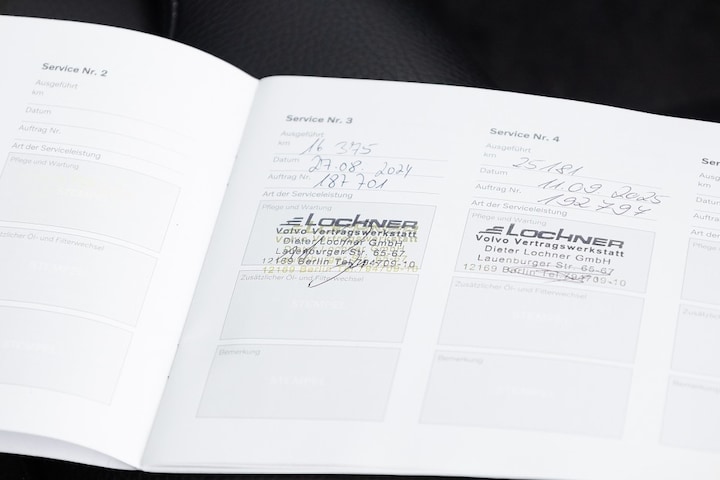 Service Nr. 2
Ausgeführt
km
Datum
Auftrag Nr.
Art der Serviceleistung
Pflege und Wartung
Zusätzlicher Öl- und Filterwechsel
Service Nr. 3
Ausgeführt
km 16 375
Datum 27.08. 2024
Auftrag Nr. 187 701
Art der Serviceleistung
Pflege und Wartung
LOCHNER
Volvo Vertragswerkstatt
Dieter Lochner GmbH
Lauenburger Str. 65-67
12169 Berlin Tel. 794709-10
Zusätzlicher Öl- und Filterwechsel
Bemerkung
Service Nr. 4
Ausgeführt
km 25181
Datum 11.09 2025
Auftrag Nr. 192 797
Art der Serviceleistung
Pflege und Wartung
LOCHNER
Volvo Vertragswerkstatt
Dieter Lochner GmbH
Lauenburger Str. 65-67
12169 Berlin Tel. 794709-10
Zusätzlicher Öl- und Filterwechsel
Bemerkung
Service
Ausgeführt
km
Datum
Auftrag
Art der
Pflege
Zusätzlicher
Bemerkung